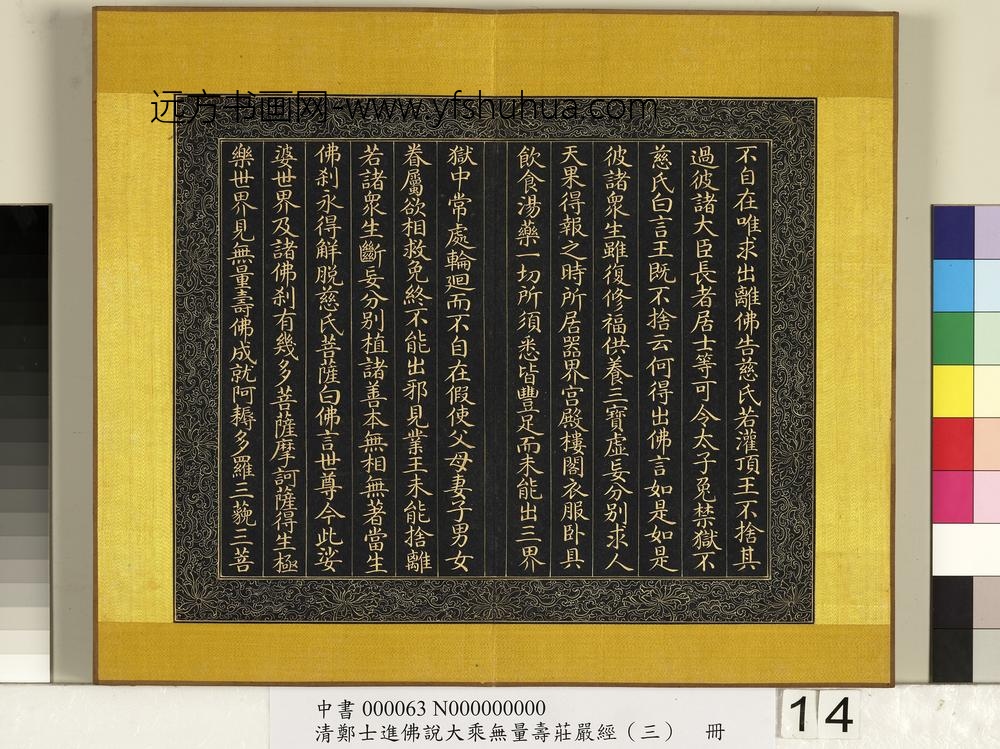 远方书画网-www.yfshuhua.com
不自在唯求出離佛告慈氏若灌頂王不捨其
過彼諸大臣長者居士等可令太子免禁獄不
慈氏白言王既不捨云何得出佛言如是如是
彼諸衆生雖復修福供養三寶虛妄分別求人
天果得報之時所居器界宮殿樓閣衣服卧具
飲食湯藥一切所須悉皆豐足而未能出三界
獄中常處輪迴而不自在假使父母妻子男女
眷屬欲相救免終不能出邪見業王未能捨離
若諸衆生斷妄分別植諸善本無相無著當生
佛刹永得解脫慈氏菩薩白佛言世尊今此娑
婆世界及諸佛刹有幾多菩薩摩訶薩得生極
樂世界見無量壽佛成就阿耨多羅三藐三菩
中書 000063 N000000000
清鄭士進佛說大乘無量壽莊嚴經（三） 冊
14